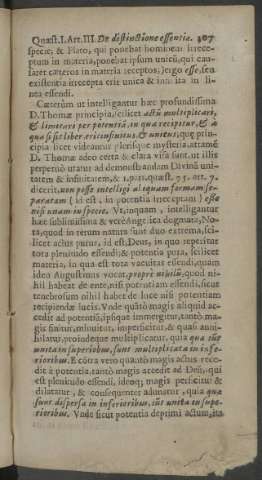 Quæst. I. Art. III. De distinctione essentiæ. 307
specie, & Plato, qui ponebat hominem irrece-
ptum in materia, ponebat ipsum unicũ, qui cau-
saret cæteros in materia receptos; ergo esse, seu
existentia irrecepta erit unica & infinita in li-
nea essendi.
Cæterùm ut intelligantur hæc profundissima
D. Thomæ principia, scilicet actũ multiplicari,
& limitari per potentiã, in qua recipitur, & à
qua si sit liber erit infinitus, & unicus, quæ princi-
pia licet videantur plerisque mysteria, attamẽ
D. Thomæ adeo certa & clara visa sunt, ut illis
perpetuò utatur ad demonstrandam Divinã uni-
tatem & infinitatem, & 1. part. quæst. 75. art. 7.
dicerit, non posse intelligi aliquam formam se-
paratam (id est, in potentia irreceptam) esse
nisi unam in specie. Ut, inquam, intelligantur
hæc sublimissima & verè Angelica dogmata, No-
ta, quod in rerum natura sunt duo extrema, sci-
licet actus purus, id est, Deus, in quo reperitur
tota plenitudo essendi, & potentia pura, scilicet
materia, in qua est tota vacuitas essendi, quam
ideo Augustinus vocat, propè nihilũ, quod ni-
hil habeat de ente, nisi potentiam essendi, sicut
tenebrosum nihil habet de luce nisi potentiam
recipiendæ lucis. Unde quãtò magis aliquid ac-
cedit ad potentiã, ipsique immergitur, tantò ma-
gis finitur, minuitur, imperficitur, & quasi anni-
hilatur, proindeque multiplicatur, quia quæ sũt
unita in superioribus, sunt multiplicata in infe-
rioribus. E cõtra vero quantò magis actus rece-
dit à potentia, tantò magis accedit ad Deũ, qui
est plenitudo essendi, ideoq; magis perficitur &
dilatatur, & consequenter adunatur, quia quæ
sunt dispersa in inferioribus, sũt unita in supe-
rioribus. Unde sicut potentia deprimi actum, ita